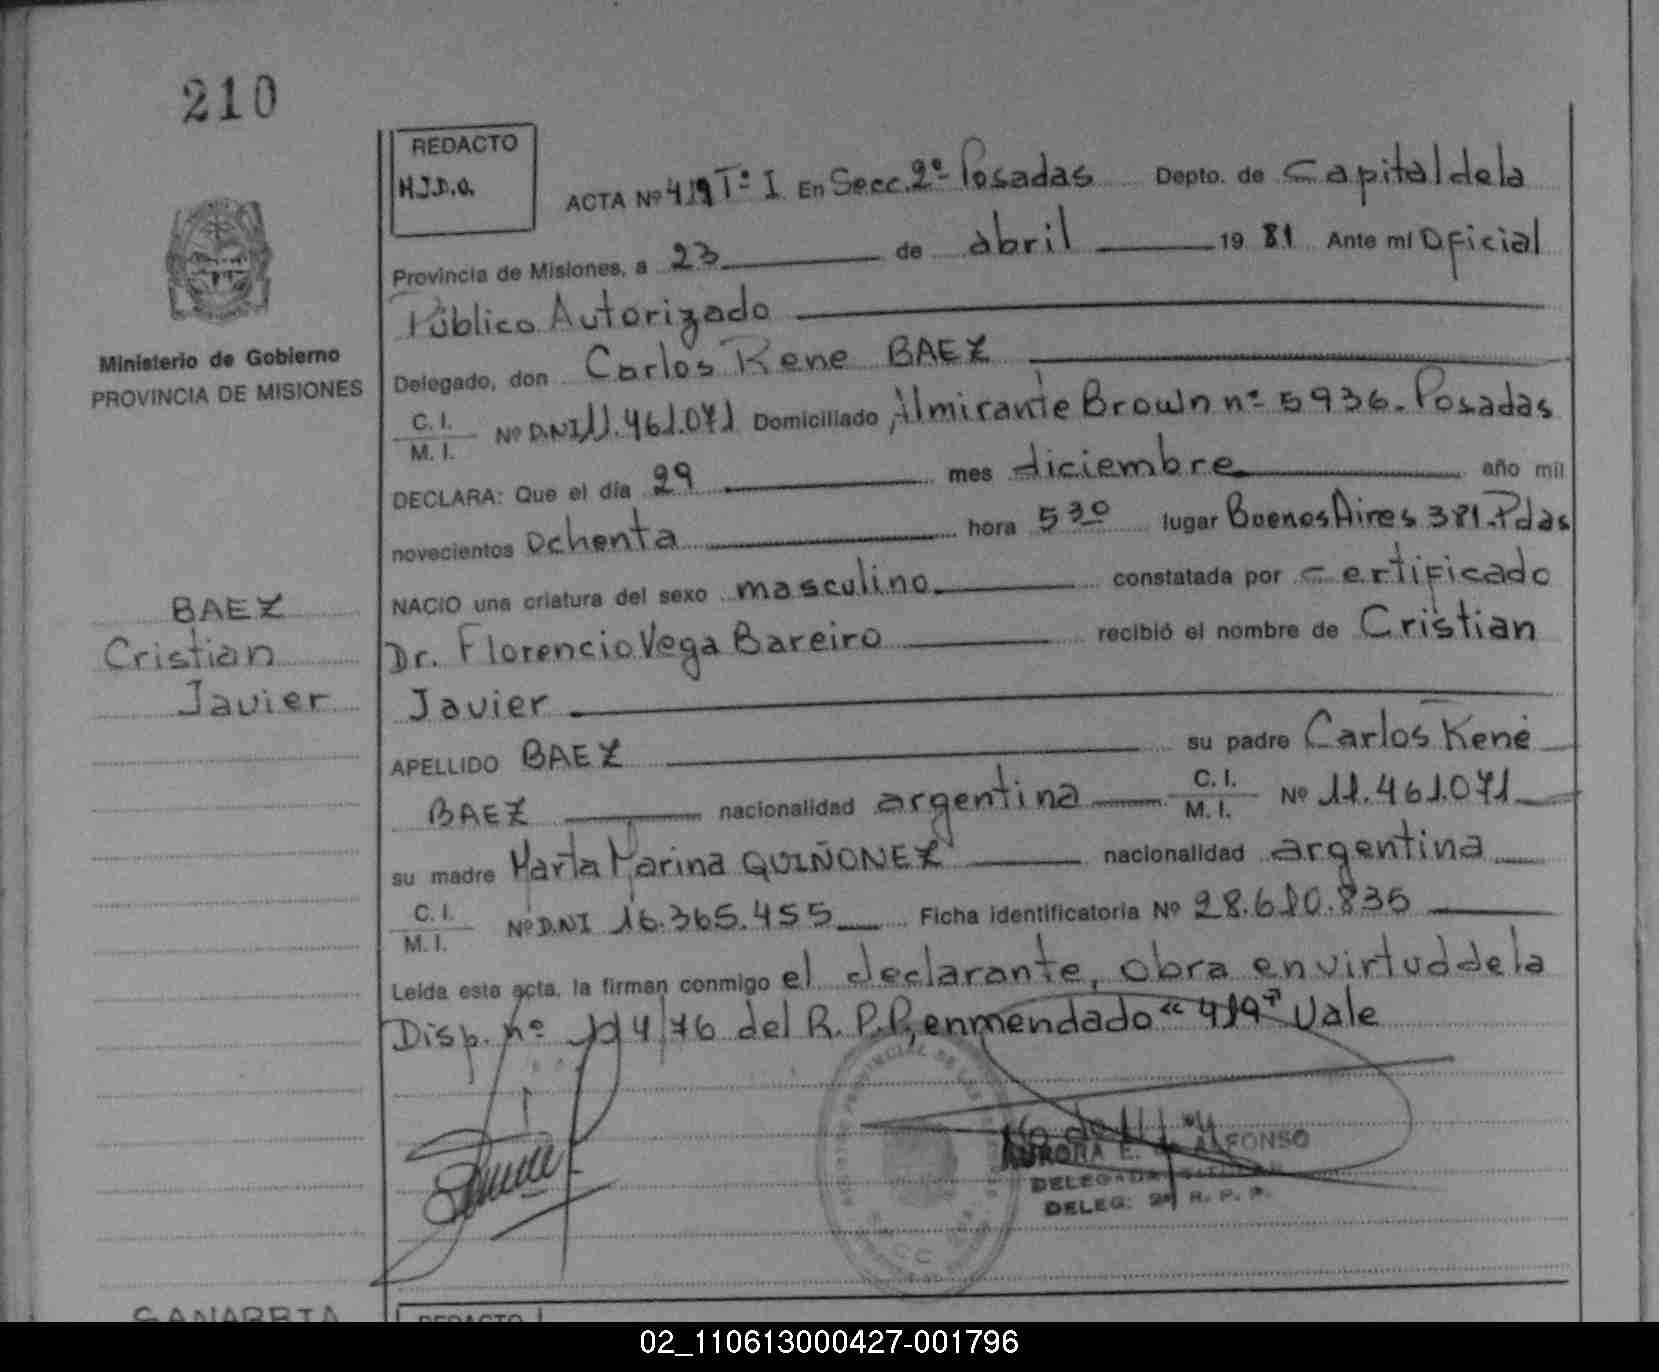 210
REDACTO
H.J.D.O.
ACTA Nº 419 Tº I. En Secc. 2º Posadas Depto. de Capital de la
Provincia de Misiones, a 23 de abril 19 81 Ante mi Oficial
Público Autorizado
Delegado, don Carlos Rene BAEZ
C. I.
M. I.
Nº D.N.I 11.461.071 Domiciliado Almirante Brown nº 5936. Posadas
DECLARA: Que el día 29 mes diciembre año mil
novecientos ochenta hora 5 30 lugar Buenos Aires 381. Pdas
NACIO una criatura del sexo masculino constatada por certificado
Dr. Florencio Vega Bareiro recibió el nombre de Cristian
Javier
APELLIDO BAEZ su padre Carlos René
BAEZ nacionalidad argentina C. I.
M. I.
Nº 11.461.071
su madre Marta Marina QUIÑONEZ nacionalidad argentina
C. I.
M. I.
Nº D.N.I 16.365.455 Ficha identificatoria Nº 28.610.835
Leída esta acta, la firman conmigo el declarante, obra en virtud de la
Disp. nº 114/76 del R. P. P, enmendado "419" Vale
AURORA E. de ALFONSO
DELEGADA TITULAR
DELEG: 2ª R. P. P.
Ministerio de Gobierno
PROVINCIA DE MISIONES
BAEZ
Cristian
Javier
SANABRIA
REDACTO
02_110613000427-001796